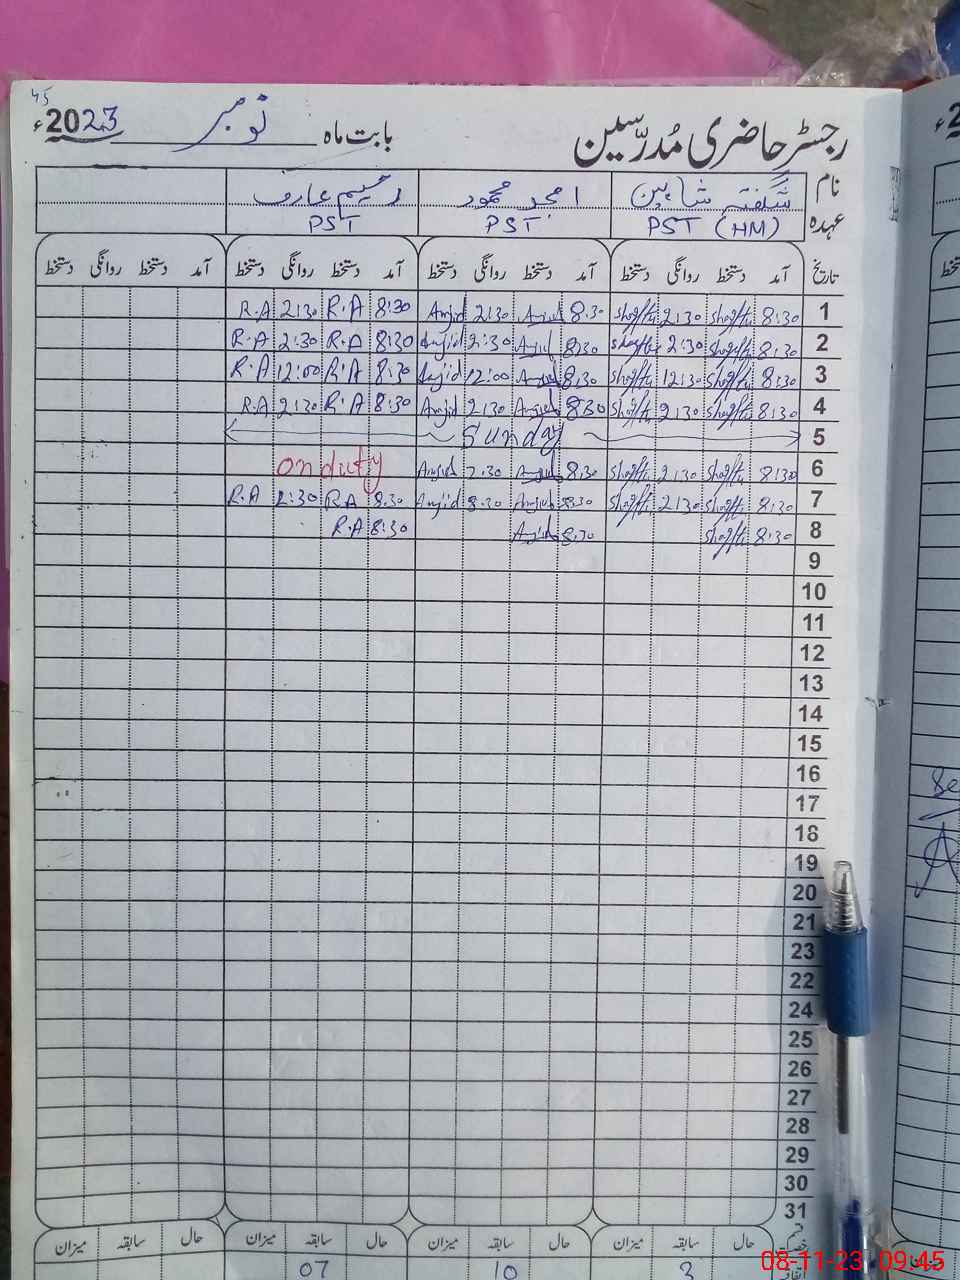 45
رجسٹر حاضری مُدرّسین بابت ماہ نومبر 2023ء
نام شگفتہ شاہین امجد محمود رحیم عارف
عہدہ PST (HM) PST PST
تاریخ آمد دستخط روانگی دستخط آمد دستخط روانگی دستخط آمد دستخط روانگی دستخط آمد دستخط روانگی دستخط
R.A 2:30 R.A 8:30 Amjid 2:30 Amjid 8:30 Shagfta 2:30 Shagfta 8:30 1
R.A 2:30 R.A 8:30 Amjid 2:30 Amjid 8:30 Shagfta 2:30 Shagfta 8:30 2
R.A 12:00 R.A 8:30 Amjid 12:00 Amjid 8:30 Shagfta 12:30 Shagfta 8:30 3
R.A 2:30 R.A 8:30 Amjid 2:30 Amjid 8:30 Shagfta 2:30 Shagfta 8:30 4
Sunday 5
on duty Amjid 2:30 Amjid 8:30 Shagfta 2:30 Shagfta 8:30 6
R.A 2:30 R.A 8:30 Amjid 8:30 Amjid 8:30 Shagfta 2:30 Shagfta 8:30 7
R.A 8:30 Amjid 8:30 Shagfta 8:30 8
9
10
11
12
13
14
15
16
17
18
19
20
21
23
22
24
25
26
27
28
29
30
31
حال سابقہ میزان حال سابقہ میزان حال سابقہ میزان حال سابقہ میزان
07 10 3
08-11-23 09:45